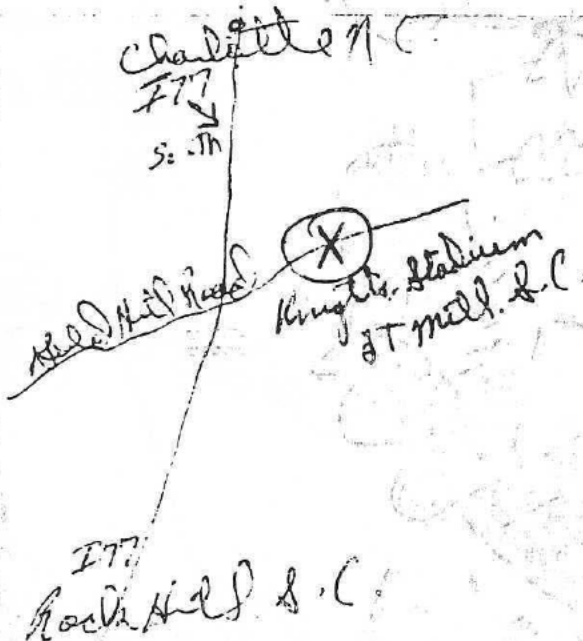 Charlotte N C.
I77
South
X
Road
Knights Stadium
FT Mill. S.C.
I77
Rock Hill S.C.